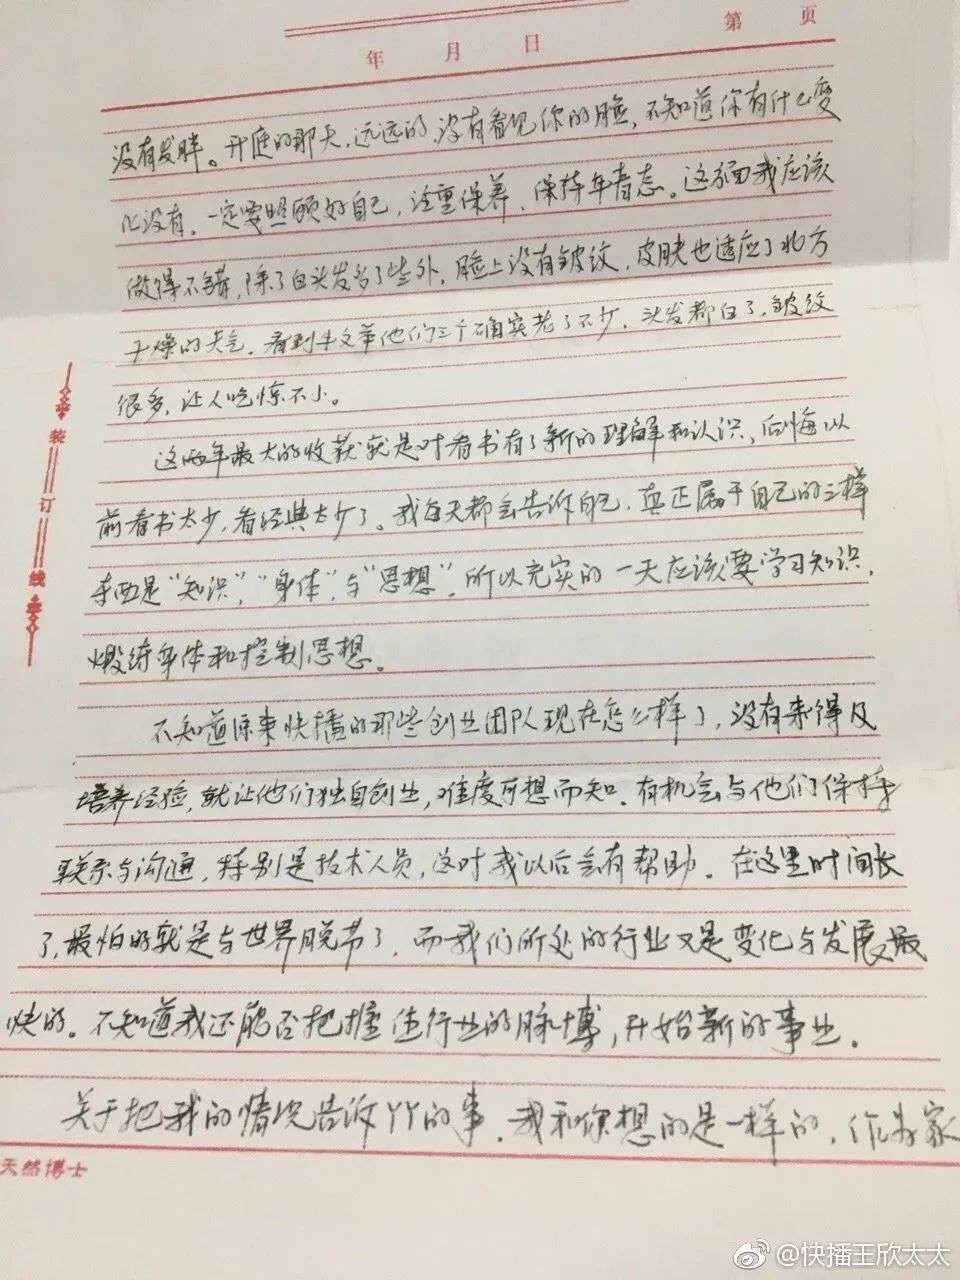 第 页
年 月 日
没有发胖。开庭的那天，远远的，没有看见你的脸，不知道你有什么变
化没有。一定要照顾好自己，注重保养，保持年青态。这方面我应该
做得不错，除了白头发多了些外，脸上没有皱纹，皮肤也适应了北方
干燥的天气。看到牛文举他们三个确实老了不少，头发都白了，皱纹
很多，让人吃惊不小。
这两年最大的收获就是对看书有了新的理解和认识，后悔以
前看书太少，看经典太少了。我每天都会告诉自己，真正属于自己的三样
东西是“知识”，“身体”与“思想”，所以充实的一天应该要学习知识，
煅练身体和控制思想。
不知道原来快播的那些创业团队现在怎么样了，没有来得及
培养经验，就让他们独自创业，难度可想而知。有机会与他们保持
联系与沟通，特别是技术人员，这对我以后会有帮助。在这里时间长
了，最怕的就是与世界脱节了，而我们所处的行业又是变化与发展最
快的。不知道我还能否把握住行业的脉博，开始新的事业。
关于把我的情况告诉丫丫的事，我和你想的是一样的，作为家
装订线
天然博士
@快播王欣太太